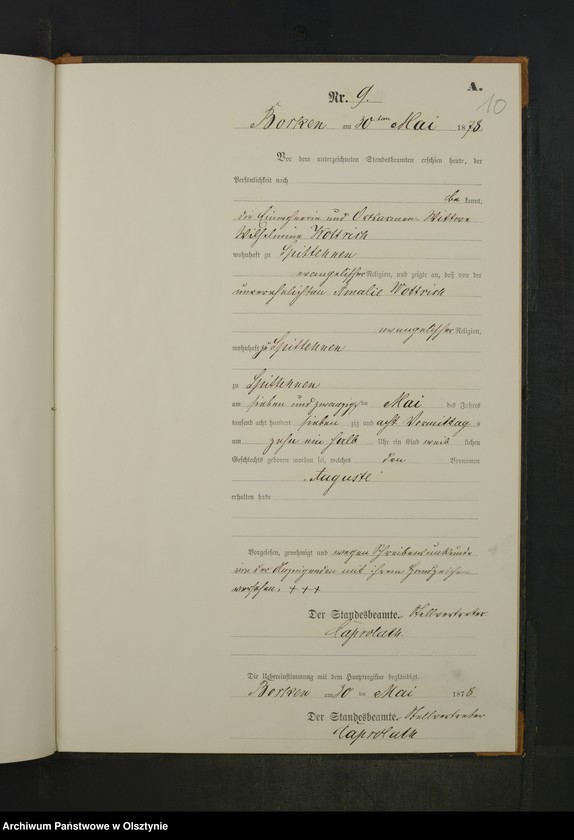 A.
10
Nr. 9.
Borken am 30ten Mai 1878
Vor dem unterzeichneten Standesbeamten erschien heute, der
Persönlichkeit nach
be kannt,
die Einwohnerin und Wittwe
Wilhelmine Wottrich
wohnhaft zu Spittehnen
evangelischer Religion, und zeigte an, daß von der
unverehelichten Amalie Wottrich
evangelischer Religion,
wohnhaft zu Spittehnen
zu Spittehnen
am sieben und zwanzigsten Mai des Jahres
tausend acht hundert sieben zig und acht Vormittags
um zehn ein halb Uhr ein Kind weib lichen
Geschlechts geboren worden sei, welches den Vornamen
Auguste
erhalten habe
Vorgelesen, genehmigt und wegen Schreibensunkunde
von der Anzeigenden mit ihrem Handzeichen
versehen. +++
Der Standesbeamte. Stellvertreter
Die Uebereinstimmung mit dem Hauptregister beglaubigt.
Borken am 30 ten Mai 1878.
Der Standesbeamte. Stellvertreter
Archiwum Państwowe w Olsztynie